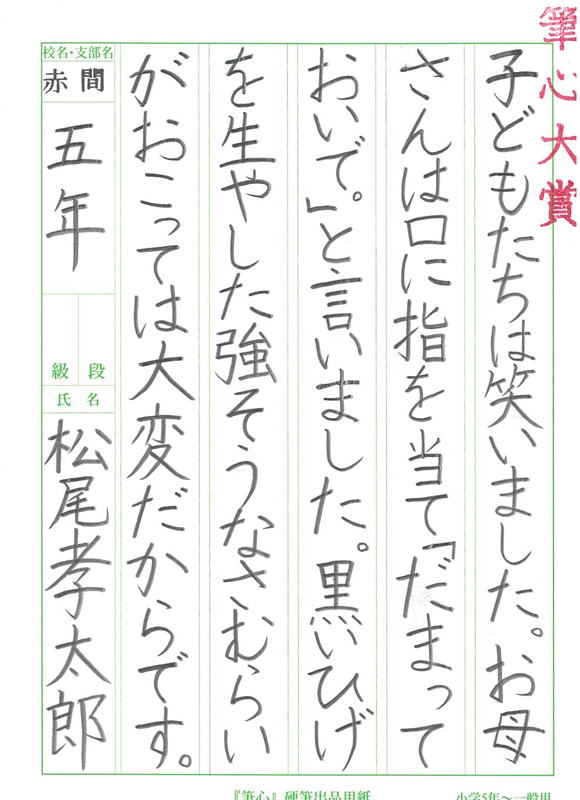 筆心大賞
子どもたちは笑いました。お母
さんは口に指を当て「だまって
おいで。」と言いました。黒いひげ
を生やした強そうなさむらい
がおこっては大変だからです。
校名・支部名
赤間
五年
級 段
氏名
松尾孝太郎
『筆心』硬筆出品用紙
小学5年～一般用